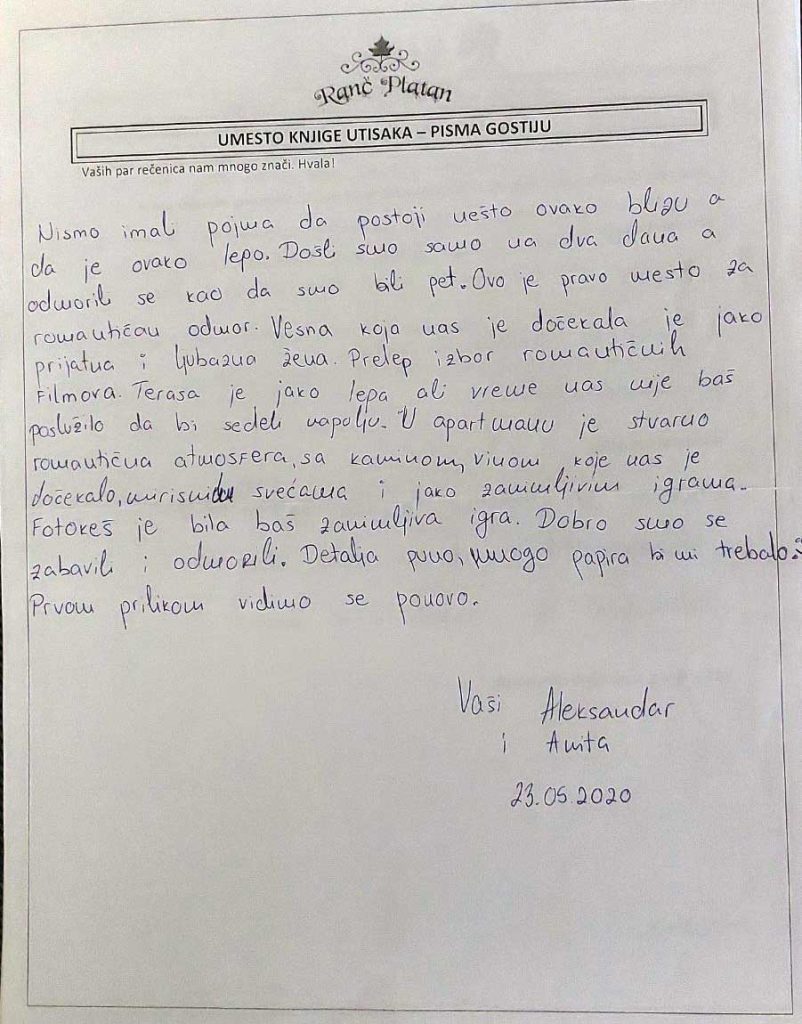 Ranč Platan
UMESTO KNJIGE UTISAKA – PISMA GOSTIJU
Vaših par rečenica nam mnogo znači. Hvala!
Nismo imali pojma da postoji nešto ovako blizu a
da je ovako lepo. Došli smo samo na dva dana a
odmorili se kao da smo bili pet. Ovo je pravo mesto za
romantičan odmor. Vesna koja nas je dočekala je jako
prijatna i ljubazna žena. Prelep izbor romantičnih
filmova. Terasa je jako lepa ali vreme nas nije baš
poslužilo da bi sedeli napolju. U apartmanu je stvarno
romantična atmosfera, sa kaminom, vinom koje nas je
dočekalo, mirisnim svećama i jako zanimljivim igrama.
Fotokeš je bila baš zanimljiva igra. Dobro smo se
zabavili i odmorili. Detalja puno, mnogo papira bi mi trebalo. :)
Prvom prilikom vidimo se ponovo.
Vaši Aleksandar
i Anita
23.05.2020